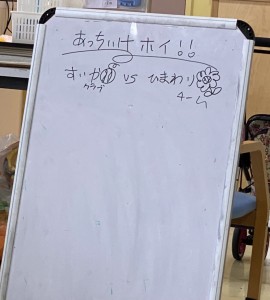 あっちいけホイ!!
すいか vs ひまわり
クラブ チーム